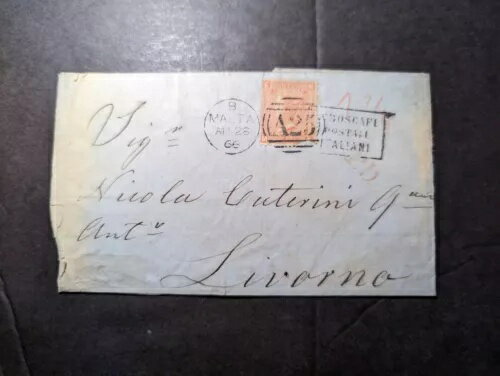 B
MALTA
AP 26
66
A25
PIROSCAFI
POSTALI
ITALIANI
Sigr
Nicola Cuterini Qm
Antr
Livorno